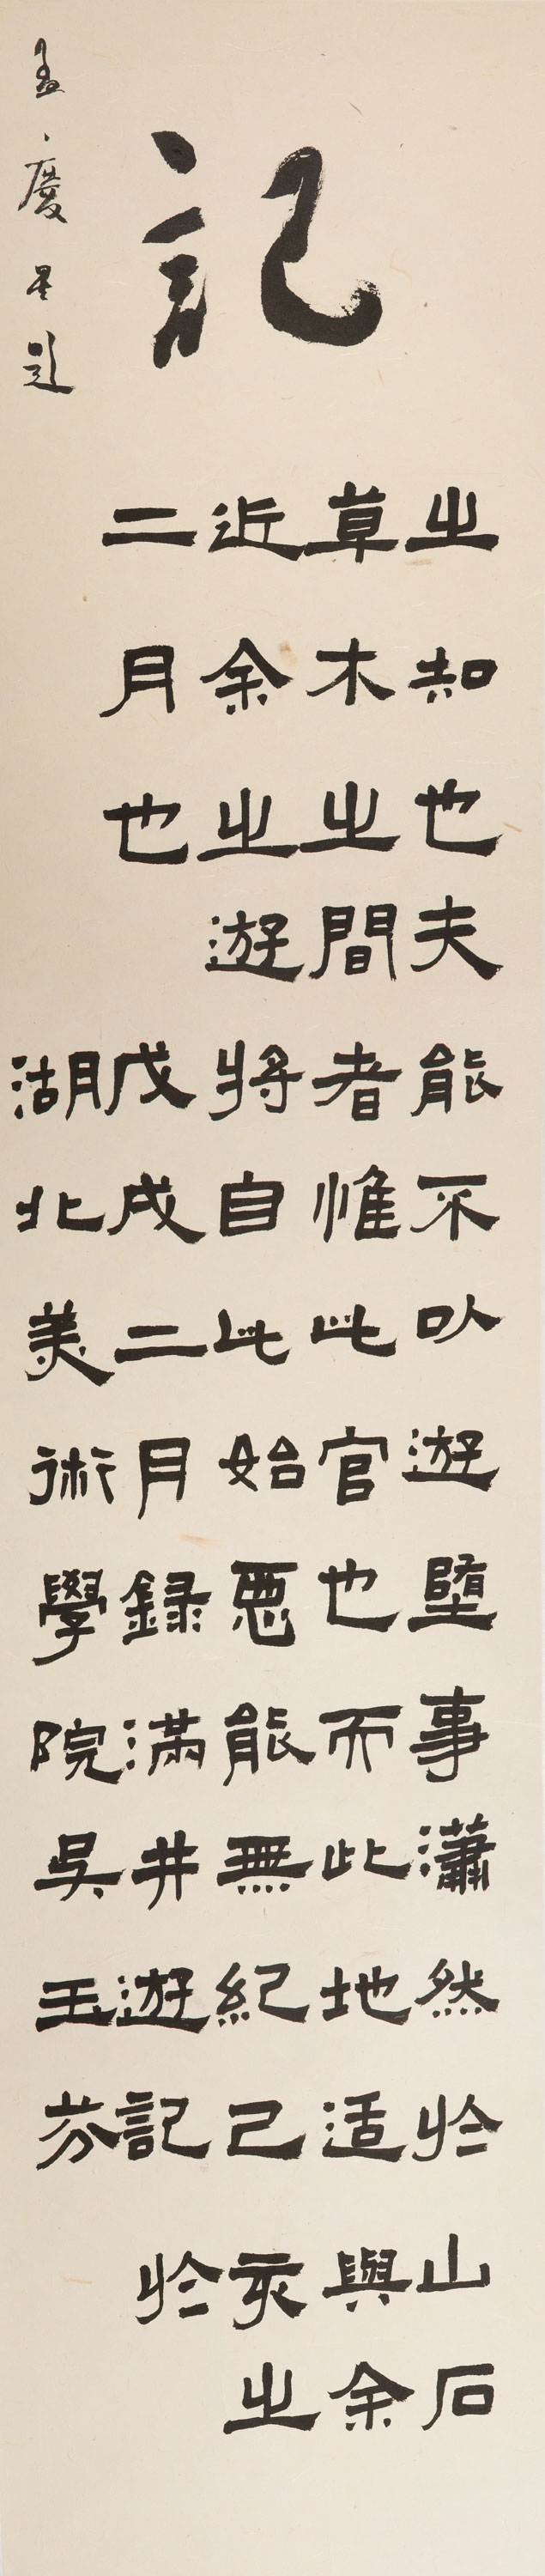 記
孟慶星題
之知也夫能不以遊墮事瀟然於山石
草木之間者惟此官也而此地适與余
近余之遊將自此始惡能無紀己亥之
二月也 戊戌二月録滿井遊記於
湖北美術學院吳玉芬